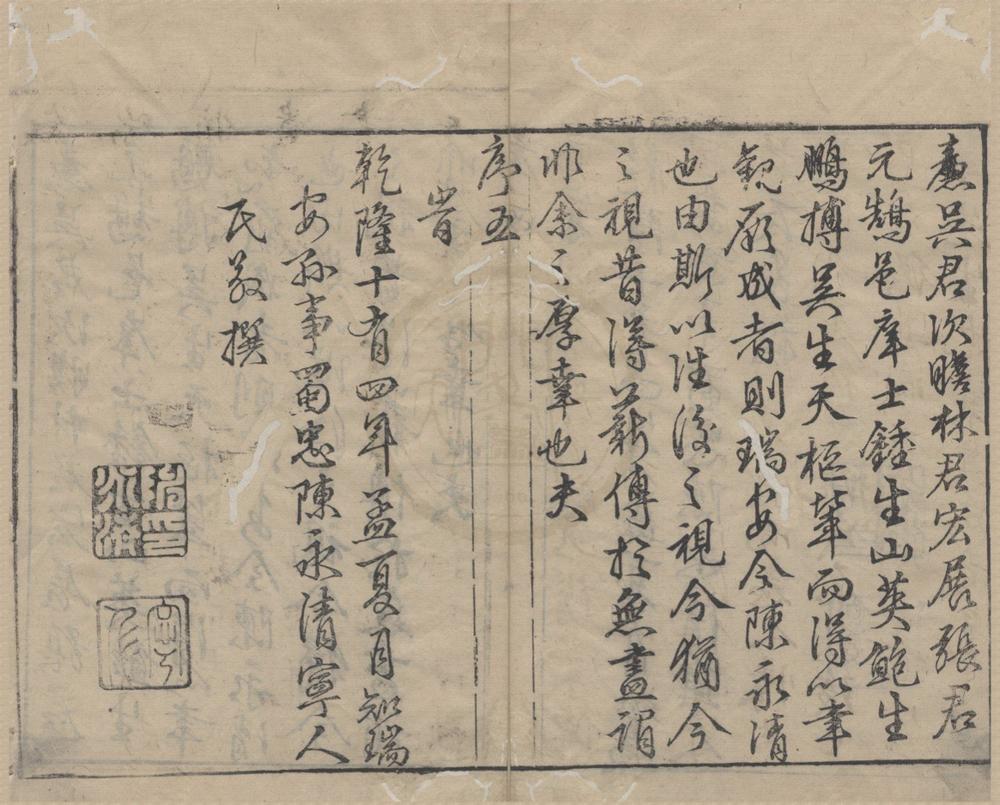 燾吳君次瞻林君宏展張君
元鵠邑庠士鍾生山英鮑生
鵬摶吳生天樞輩而得以幸
觀厥成者則瑞安令陳永清
也由斯以往後之視今猶今
之視昔得薪傳於無盡謂
非余之厚幸也夫
序五
峕
乾隆十有四年孟夏月知瑞
安縣事蜀忠陳永清寧人
氏敬撰